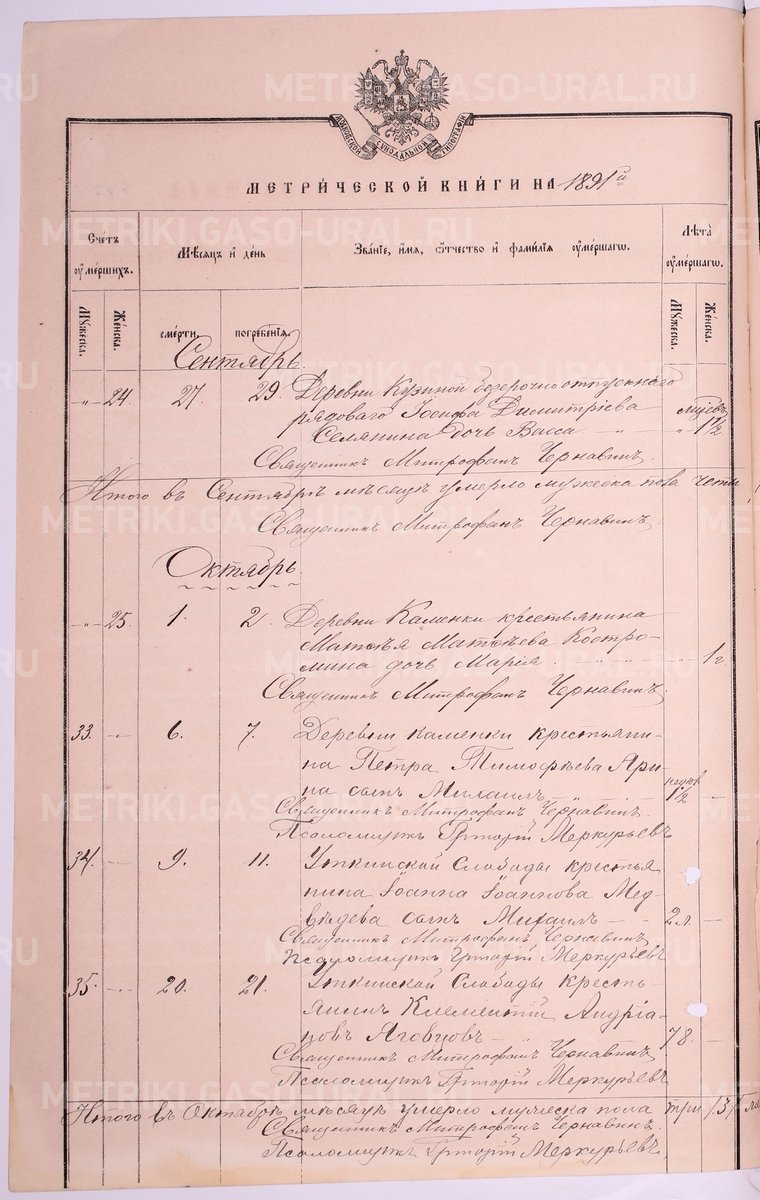 МОСКОВСКОЙ СѴНОДАЛЬНОЙ ТИПОГРАФІИ
МЕТРИ́ЧЕСКОЙ КНИ́ГИ НА 1891й
Сче́тъ оуме́ршихъ.
Мѣ́сяцъ и҆ де́нь
Зва́нїе, и҆́мя, ѻ҆́тчество и҆ фами́лїя оуме́ршагѡ.
Лѣ́та оуме́ршагѡ.
Мꙋ́жеска.
Же́нска.
сме́рти.
погребе́нїя.
Мꙋ́жеска.
Же́нска.
Сентябрь.
„ 24. 27. 29. Деревни Кузиной безсрочно отпускнаго
рядоваго Іосифа Димитріева мцевъ
Селянина дочь Васса „ „ 1½
Священникъ Митрофанъ Чернавинъ.
Итого въ Сентябрѣ мѣсяцѣ умерло мужеска пола четы
Священникъ Митрофанъ Чернавинъ.
Октябрь.
„ 25. 1. 2. Деревни Каменки крестьянина
Матѳея Матѳѣева Костро-
мина дочь Марія. „ „ „ 1 г.
Священникъ Митрофанъ Чернавинъ.
33. „ 6. 7. Деревни Каменки крестьяни-
на Петра Тимофѣева Ари-
на сынъ Михаилъ 1½
Священникъ Митрофанъ Чернавинъ.
Псаломщикъ Григорій Меркурьевъ
34. 9. 11. Уткинской Слободы крестья
нина Іоанна Іоаннова Мед-
вѣдева сынъ Михаилъ 2 л.
Священникъ Митрофанъ Чернавинъ.
Псаломщикъ Григорій Меркурьевъ
35. 20. 21. Уткинской Слободы кресть-
янинъ Климентій Андріа-
новъ Яговцовъ 78.
Священникъ Митрофанъ Чернавинъ.
Псаломщикъ Григорій Меркурьевъ
Итого въ Октябрѣ мѣсяцѣ умерло мужеска пола три /3/
Священникъ Митрофанъ Чернавинъ.
Псаломщикъ Григорій Меркурьевъ
METRIKI.GASO-URAL.RU